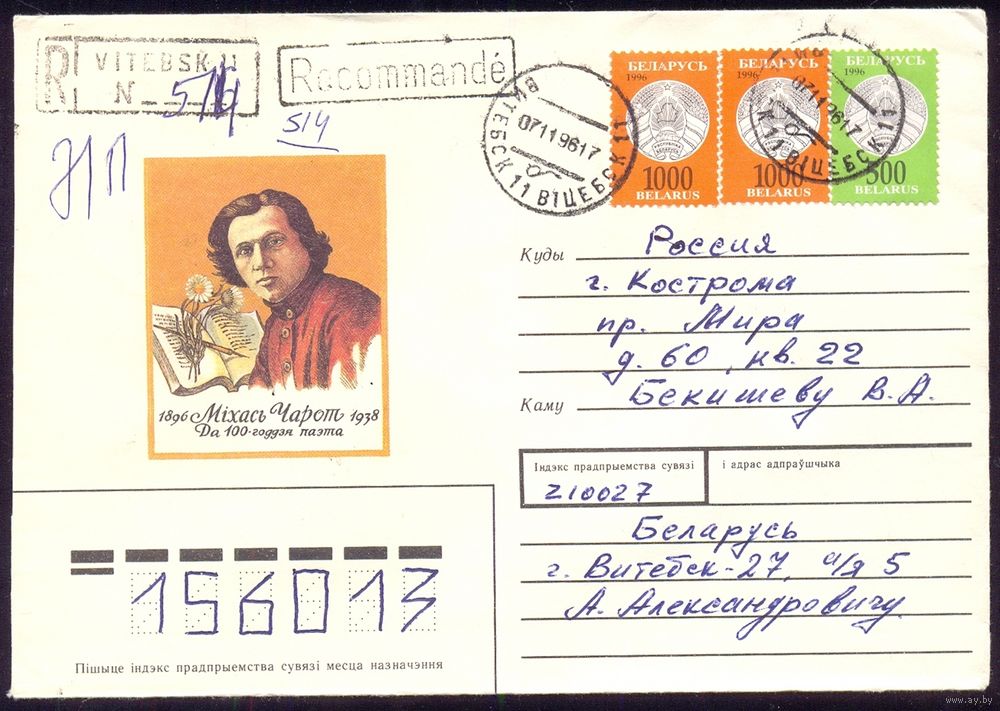 R VITEBSK 11
N 514
Recommandé
514
НП
ВИТЕБСК 11 ВІЦЕБСК 11
07 11 96 17
БЕЛАРУСЬ
1996
1000
BELARUS
БЕЛАРУСЬ
1996
1000
BELARUS
БЕЛАРУСЬ
1996
500
BELARUS
07 11 96 17
К 11 ВІЦЕБСК 11
1896 Міхась Чарот 1938
Да 100-годдзя паэта
Куды Россия
г. Кострома
пр. Мира
д. 60, кв. 22
Каму Бекишеву В.А.
Індэкс прадпрыемства сувязі і адрас адпраўшчыка
210027
Беларусь
г. Витебск-27, а/я 5
А. Александровичу
156013
Пішыце індэкс прадпрыемства сувязі месца назначэння
www.ay.by